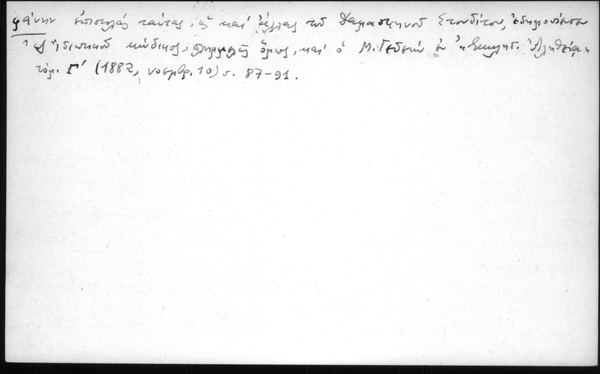 φάνην ἐπιστολὰς ταύτας, ὡς καὶ ἄλλας τοῦ Δαμασκηνοῦ Στουδίτου, ἐδημοσίευσεν
ἐξ ἰδιωτικοῦ κώδικος, ὅμως, καὶ ὁ Μ. Γεδεὼν ἐν Ἐκκλησ. Ἀληθείᾳ
τόμ. Γ′ (1882, νοεμβρ. 10) σ. 87-91.